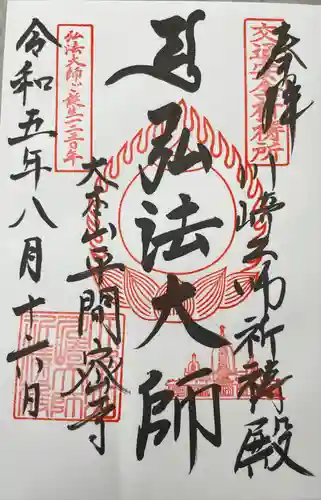 奉拝
川崎大師祈祷殿
交通安全祈祷所
弘法大師
大本山平間寺
弘法大師ご誕生一二五〇年
令和五年八月十六日